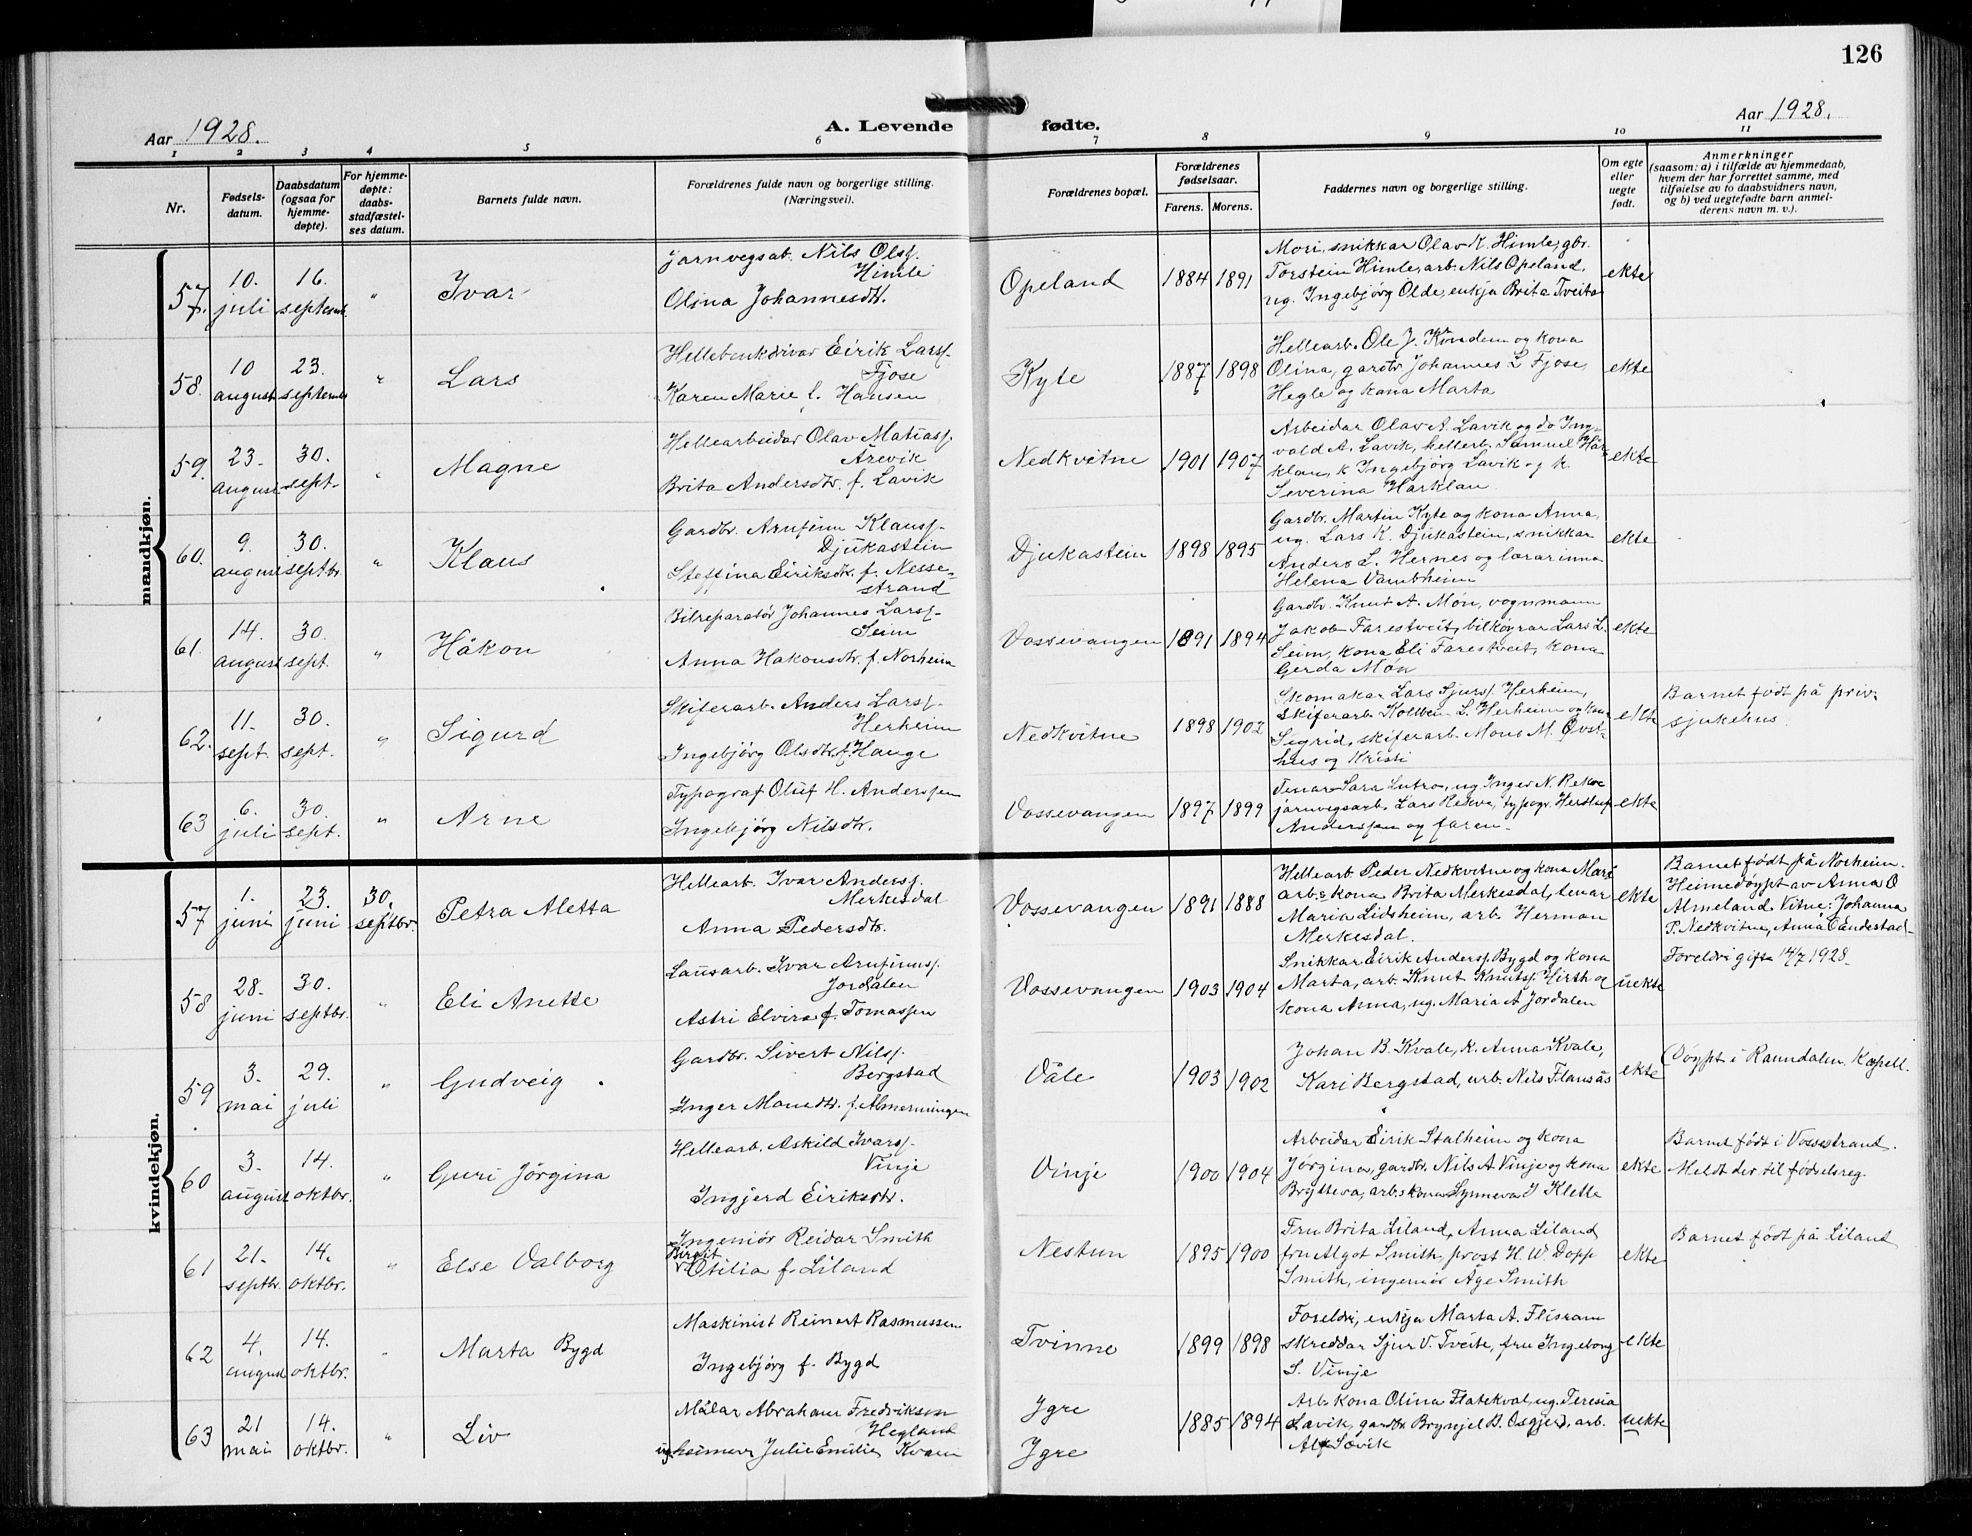 126
Aar 1928.
A. Levende fødte.
Aar 1928.
1 2 3 4 5 6 7 8 9 10 11
Nr.
Fødsels-
datum.
Daabsdatum
(ogsaa for
hjemme-
døpte).
For hjemme-
døpte:
daabs-
stadfæstel-
ses datum.
Barnets fulde navn.
Forældrenes fulde navn og borgerlige stilling.
(Næringsvei).
Forældrenes bopæl.
Forældrenes
fødselsaar.
Farens. Morens.
Faddernes navn og borgerlige stilling.
Om egte
eller
uegte
født.
Anmerkninger
(saasom: a) i tilfælde av hjemmedaab,
hvem der har forrettet samme, med
tilføielse av to daabsvidners navn,
og b) ved uegtefødte barn anmel-
derens navn m. v.).
mandkjøn.
57. 10. juli 16. septemb. " Ivar
Jarnvegsab. Nils Olsf.
Himle
Olina Johannesdtr.
Opeland 1884 1891
Mori, snikkar Olav K. Himle, gbr.
Torstein Himle, arb. Nils Opeland,
ug. Ingebjörg Olde, enkja Brita Tveita
ekte
58. 10 august 23. septemb " Lars
Hellebrukdrivar Eirik Larsf.
Fjose
Karen Marie f. Hansen
Kyte 1887 1898
Hellearb. Ole J. Kinden og kona
Olina, gardbr. Johannes L Fjose,
Hegle og kona Marta
ekte
59. 23. august 30. sept. " Magne
Hellearbeidar Olav Matiasf.
Årevik
Brita Andersdtr. f. Lavik
Nedkvitne 1901 1907
Arbeidar Olav A. Lavik og do Ing-
vald A. Lavik, hellerb. Samuel Har-
klau, k Ingebjörg Lavik og k.
Severina Harklau
ekte
60. 9. august 30. septbr. " Klaus
Gardbr. Arnfinn Klausf.
Djukastein
Steffina Eiriksdtr. f. Nesse-
strand
Djukastein 1898 1895
Gardbr. Martin Kyte og kona Anna,
ug. Lars K. Djukastein, snikkar
Anders L. Hernes og lærarinna
Helena Vambheim
ekte
61. 14. august 30. sept. " Håkon
Bilreparatör Johannes Larsf.
Seim
Anna Hakonsdtr. f. Norheim
Vossevangen 1891 1894
Gardbr. Knut A. Møn, vognmann
Jakob Farestveit, bilköyrar Lars L.
Seim, kona Eli Farestveit, kona
Gerda Møn
ekte
62. 11. sept. 30. sept. " Sigurd
Skiferarb. Anders Larsf.
Herheim
Ingebjörg Olsdtr. f. Hauge
Nedkvitne 1898 1902
Skomakar Lars Sjursf. Herheim,
skiferarb. Kolbein L. Herheim og kona
Sigrid, skiferarb. Mons M. Övst-
hus og Kristi
ekte
Barnet født på priv.
sjukehus.
63 6. juli 30. sept. " Arne
Typograf Oluf H. Anderssen
Ingebjörg Nilsdtr.
Vossevangen 1897 1899
Tenar Sara Lutro, ug Inger N. Rekve
jarnvegsarb. Lars Rekve, typogr. Herstuf
Anderssen og faren.
ekte
kvindekjøn.
57 1. juni 23. juni 30. septbr. Petra Aletta
Hellearb. Ivar Andersf.
Merkesdal
Anna Pedersdtr.
Vossevangen 1891 1888
Hellearb Peder Nedkvitne og kona Mari
arb. kona Brita Merkesdal, tenar
Maria Lidsheim, arb. Herman
Merkesdal.
ekte
Barnet født på Norheim.
Heimedøypt av Anna O
Almeland Vitne: Johanna
P. Nedkvitne, Anna C Endestad
58 28. juni 30. septbr. " Eli Anette
Lausarb. Ivar Arnfinnsf.
Jordalen
Astri Elvira f. Tomassen
Vossevangen 1903 1904
Snikkar Eirik Andersf. Bygd og kona
Marta, arb. Knut Knutsf. Hirth og
kona Anna, ug. Maria A Jordalen
uekte
Foreldri gifte 14/7 1928.
59 3. mai 29. juli " Gudveig
Gardbr. Sivert Nilsf.
Bergstad
Inger Monsdtr. f. Almenningen
Våle 1903 1902
Johan B. Kvale, K. Anna Kvale,
Kari Bergstad, arb. Nils Flansås
ekte
Döypt i Raundalen Kapell.
60 3. august 14. oktbr. " Guri Jörgina
Hellearb. Askild Ivarsf.
Vinje
Ingjerd Eiriksdtr.
Vinje 1900 1904
Arbeidar Eirik Stalheim og kona
Jörgina, gardbr. Nils A Vinje og kona
Bryteva, arbs kona Synneva I Klette
ekte
Barnet født i Vossestrand.
Meldt der til fødselsreg.
61 21. septbr. 14. oktbr. " Else Valborg
Ingeniör Reidar Smith
Birgit
Otilia f. Liland
Nestun 1895 1900
Fru Brita Liland, Anna Liland
fru Algot Smith, prost H. W Dopp
Smith, ingeniör Åge Smith
ekte
Barnet født på Liland
62 4. august 14. oktbr. " Marta Bygd
Maskinist Reinert Rasmussen
Ingebjörg f. Bygd
Tvinne 1899 1898
Foreldri, enkja Marta A. Flisram
skreddar Sjur V. Tveite, fru Ingeborg
S. Vinje
ekte
63 21 mai 14. oktbr. " Liv
Målar Abraham Fredriksen
Hegland
ug heimev Julie Emilie Kvam
Ygre
Ygre
1885 1894
Arb. kona Olina Flatekval, ug. Teresia
Lavik, gardbr Brynjel B. Osgjerd, arb.
Alf Sævik
uekte